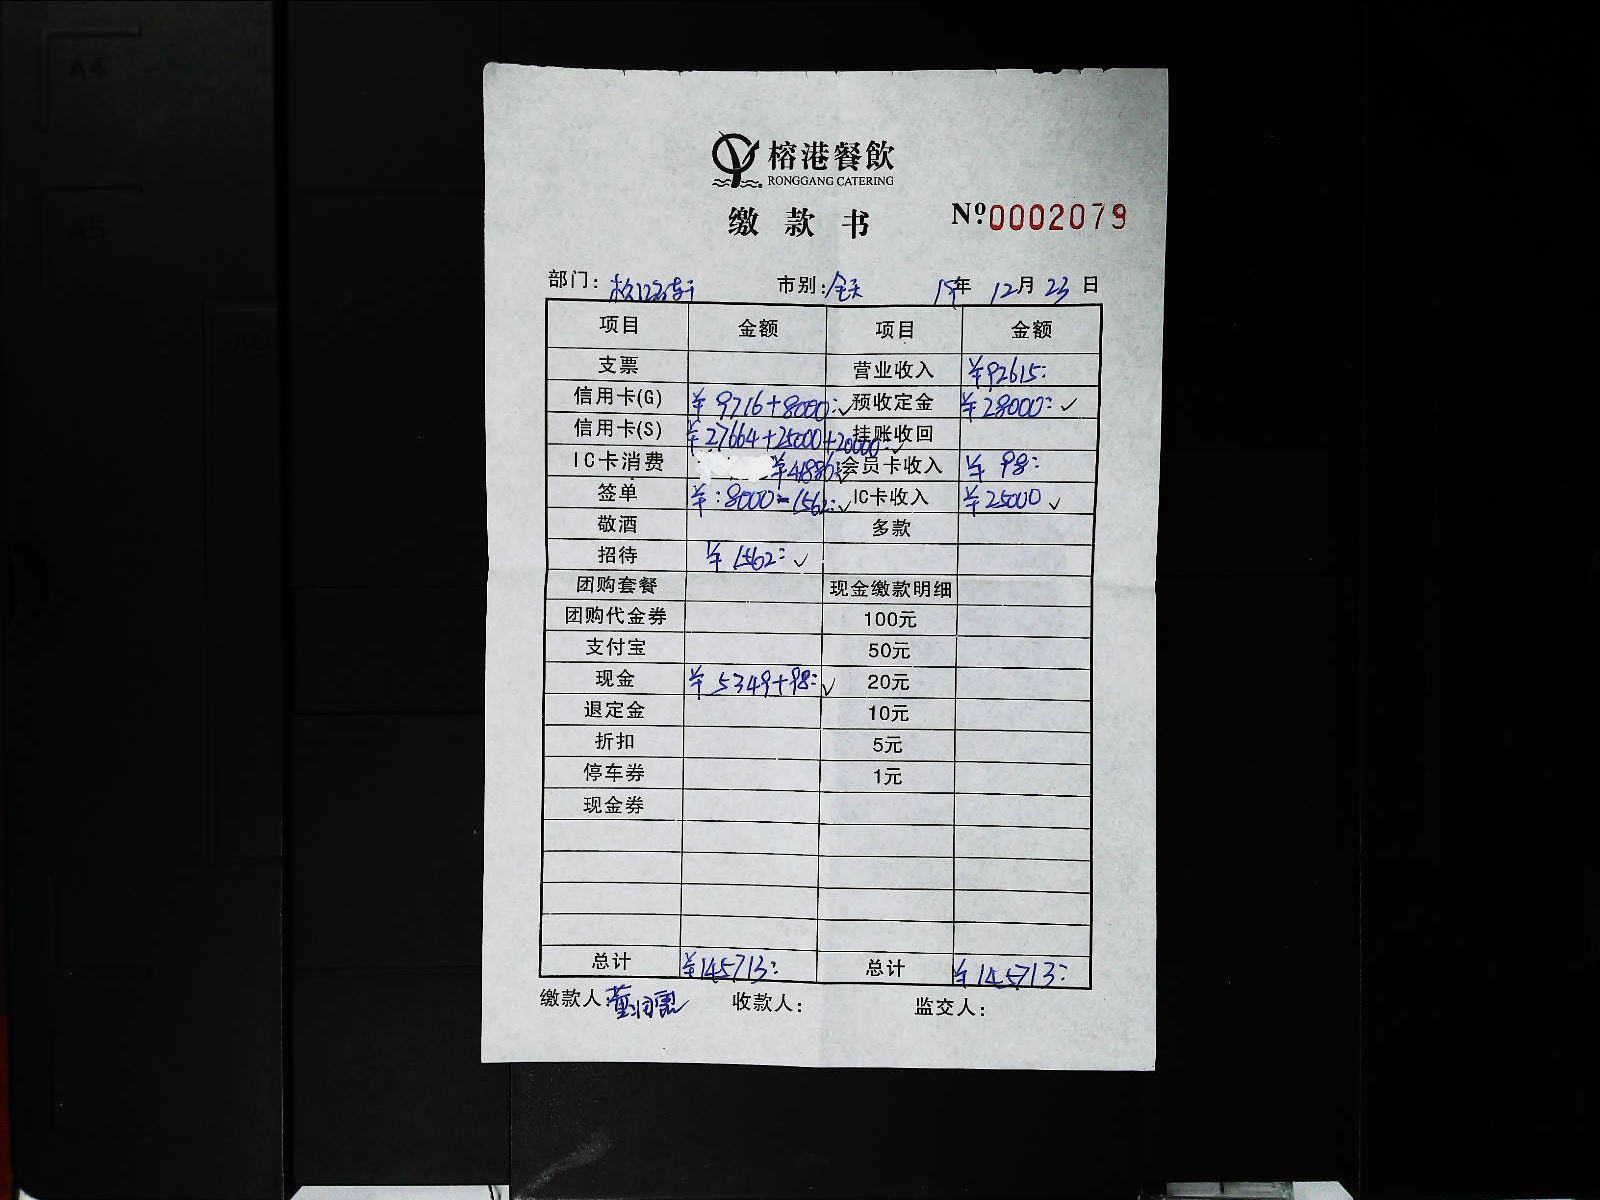 A4
A5
榕港餐飲
RONGGANG CATERING
缴款书 Nº0002079
部门: 市别:全天 19年12月23日
项目 金额 项目 金额
支票 营业收入 ¥92615:
信用卡(G) ¥9716+8000:✓ 预收定金 ¥28000:✓
信用卡(S) ¥27664+25000+20000:✓ 挂账收回
IC卡消费 ¥41886:✓ 会员卡收入 ¥98:
签单 ¥:8000-1562:✓ IC卡收入 ¥25000✓
敬酒 多款
招待 ¥1562:✓
团购套餐 现金缴款明细
团购代金券 100元
支付宝 50元
现金 ¥5349+98:✓ 20元
退定金 10元
折扣 5元
停车券 1元
现金券
总计 ¥145713: 总计 ¥145713:
缴款人: 收款人: 监交人: